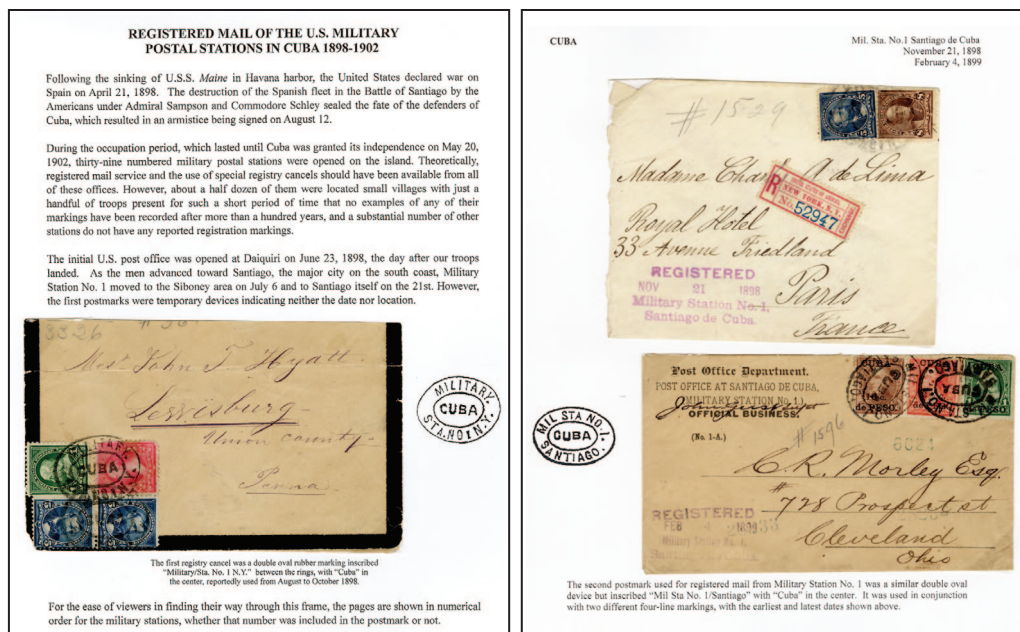 REGISTERED MAIL OF THE U.S. MILITARY
POSTAL STATIONS IN CUBA 1898-1902
Following the sinking of U.S.S. Maine in Havana harbor, the United States declared war on
Spain on April 21, 1898. The destruction of the Spanish fleet in the Battle of Santiago by the
Americans under Admiral Sampson and Commodore Schley sealed the fate of the defenders of
Cuba, which resulted in an armistice being signed on August 12.
During the occupation period, which lasted until Cuba was granted its independence on May 20,
1902, thirty-nine numbered military postal stations were opened on the island. Theoretically,
registered mail service and the use of special registry cancels should have been available from all
of these offices. However, about a half dozen of them were located small villages with just a
handful of troops present for such a short period of time that no examples of any of their
markings have been recorded after more than a hundred years, and a substantial number of other
stations do not have any reported registration markings.
The initial U.S. post office was opened at Daiquiri on June 23, 1898, the day after our troops
landed. As the men advanced toward Santiago, the major city on the south coast, Military
Station No. 1 moved to the Siboney area on July 6 and to Santiago itself on the 21st. However,
the first postmarks were temporary devices indicating neither the date nor location.
Mrs John T. Hyatt
Lewisburg
Union county
Penna
CUBA
MILITARY
CUBA
STA. NO 1 N.Y.
The first registry cancel was a double oval rubber marking inscribed
"Military/Sta. No. 1 N.Y." between the rings, with "Cuba" in
the center, reportedly used from August to October 1898.
For the ease of viewers in finding their way through this frame, the pages are shown in numerical
order for the military stations, whether that number was included in the postmark or not.
CUBA
Mil. Sta. No.1 Santiago de Cuba
November 21, 1898
February 4, 1899
# 1529
Madame Chas A de Lima
R
NEW YORK, N.Y.
No. 52947
Royal Hotel
33 Avenue Friedland
Paris
France
REGISTERED
NOV 21 1898
Military Station No. 1,
Santiago de Cuba.
Post Office Department.
POST OFFICE AT SANTIAGO DE CUBA,
(MILITARY STATION No. 1.)
OFFICIAL BUSINESS.
(No. 1-A.)
# 1596
CUBA
CUBA
de PESO
de PESO
PESO
C. R. Morley Esq.
# 728 Prospect st
Cleveland
Ohio
REGISTERED
FEB 4 1899
MIL STA NO. 1.
CUBA
SANTIAGO.
The second postmark used for registered mail from Military Station No. 1 was a similar double oval
device but inscribed "Mil Sta No. 1/Santiago" with "Cuba" in the center. It was used in conjunction
with two different four-line markings, with the earliest and latest dates shown above.